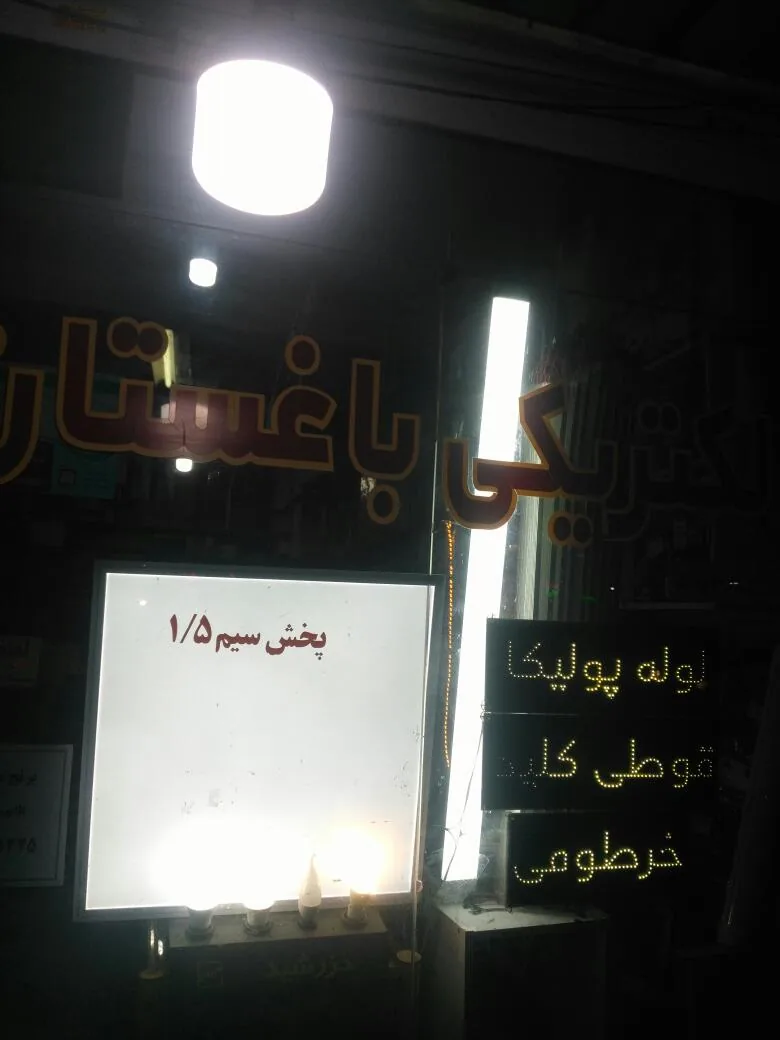 الکتریکی باغستان
پخش سیم ۱/۵
لوله پولیکا
قوطی کلید
خرطومی
خورشید